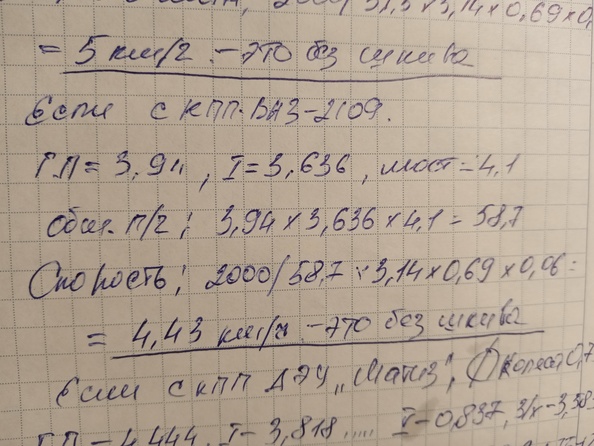 2000/51,3 x 3,14 x 0,69 x 0,
= 5 км/г - это без шкива
Если с КПП. ВАЗ-2109.
Г.П = 3,94, I = 3,636, мост = 4,1
Общ. П/г; 3,94 x 3,636 x 4,1 = 58,7
Скорость; 2000/58,7 x 3,14 x 0,69 x 0,06 =
= 4,43 км/ч - это без шкива
Если с КПП ДЭУ „Матиз", Ø колеса 0,7
Г.П - 4,444, I - 3,818, .... I - 0,837, З/х - 3,38